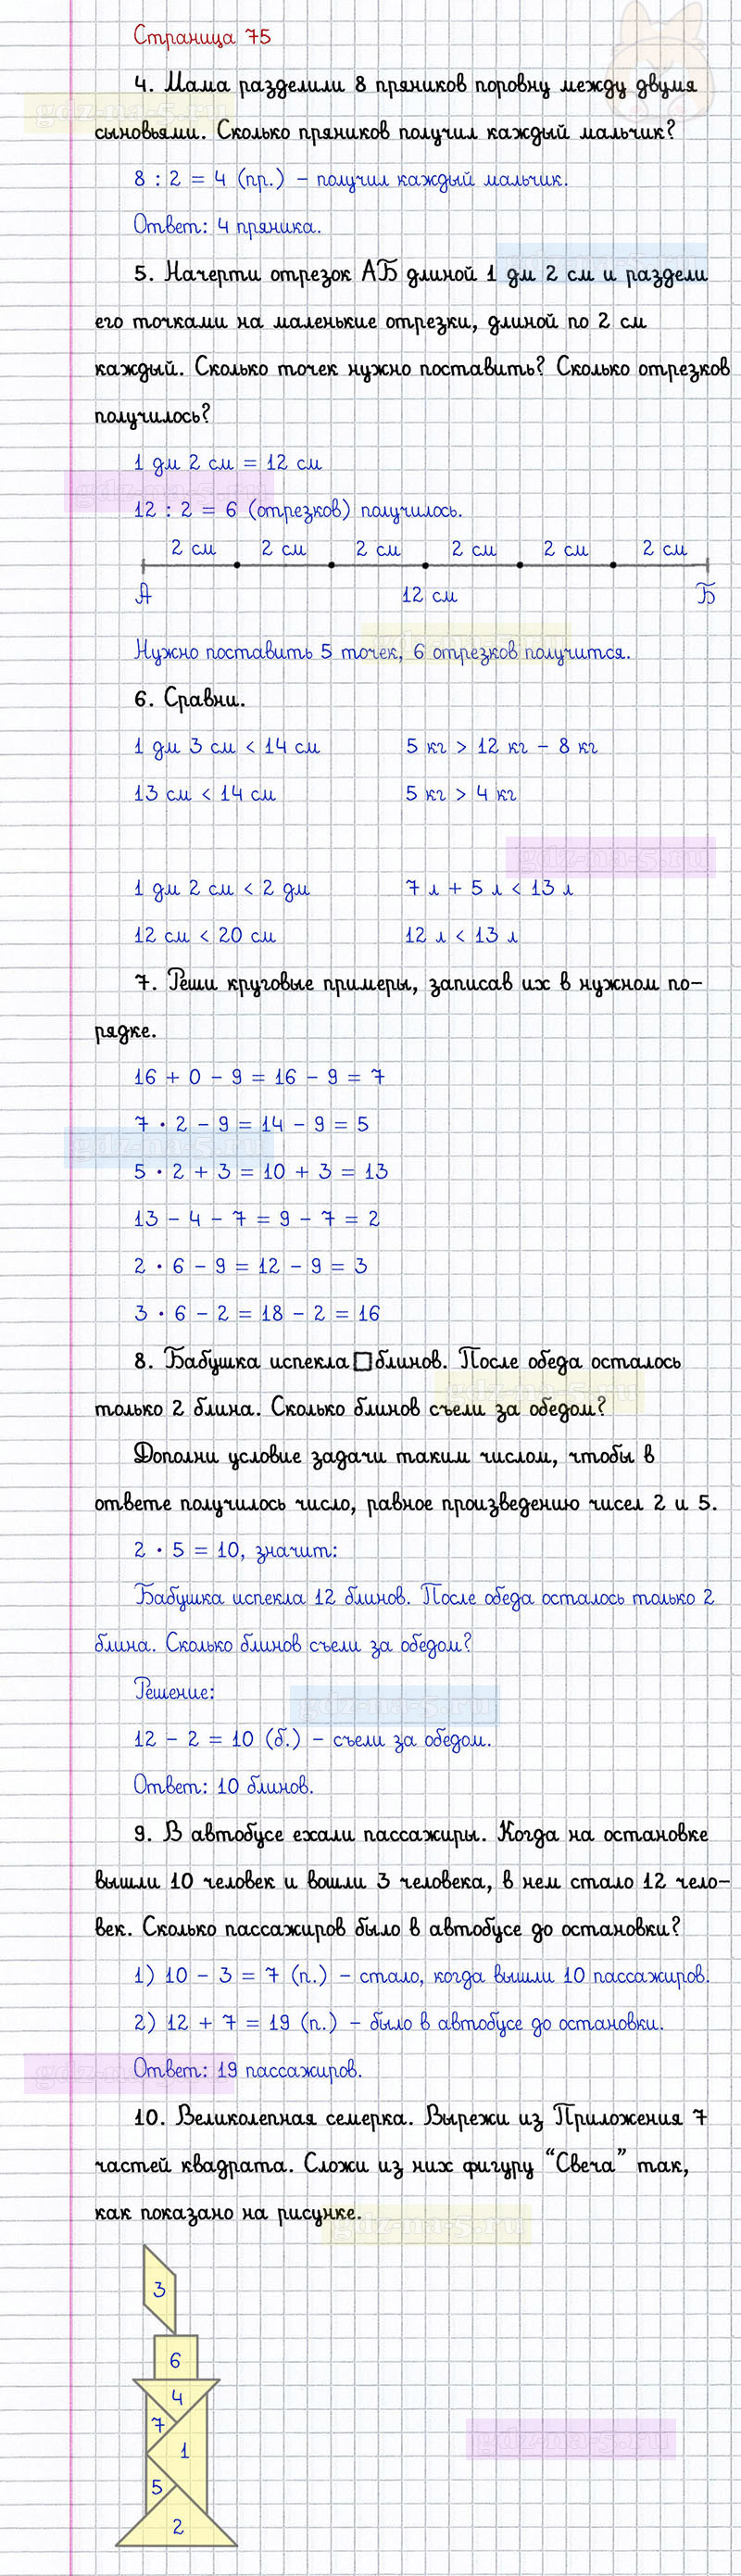 Страница 75
4. Мама разделили 8 пряников поровну между двумя
сыновьями. Сколько пряников получил каждый мальчик?
8 : 2 = 4 (пр.) – получил каждый мальчик.
Ответ: 4 пряника.
5. Начерти отрезок АБ длиной 1 дм 2 см и раздели
его точками на маленькие отрезки, длиной по 2 см
каждый. Сколько точек нужно поставить? Сколько отрезков
получилось?
1 дм 2 см = 12 см
12 : 2 = 6 (отрезков) получилось.
2 см 2 см 2 см 2 см 2 см 2 см
А 12 см Б
Нужно поставить 5 точек, 6 отрезков получится.
6. Сравни.
1 дм 3 см < 14 см 5 кг > 12 кг – 8 кг
13 см < 14 см 5 кг > 4 кг
1 дм 2 см < 2 дм 7 л + 5 л < 13 л
12 см < 20 см 12 л < 13 л
7. Реши круговые примеры, записав их в нужном по-
рядке.
16 + 0 – 9 = 16 – 9 = 7
7 · 2 – 9 = 14 – 9 = 5
5 · 2 + 3 = 10 + 3 = 13
13 – 4 – 7 = 9 – 7 = 2
2 · 6 – 9 = 12 – 9 = 3
3 · 6 – 2 = 18 – 2 = 16
8. Бабушка испекла блинов. После обеда осталось
только 2 блина. Сколько блинов съели за обедом?
Дополни условие задачи таким числом, чтобы в
ответе получилось число, равное произведению чисел 2 и 5.
2 · 5 = 10, значит:
Бабушка испекла 12 блинов. После обеда осталось только 2
блина. Сколько блинов съели за обедом?
Решение:
12 – 2 = 10 (б.) – съели за обедом.
Ответ: 10 блинов.
9. В автобусе ехали пассажиры. Когда на остановке
вышли 10 человек и вошли 3 человека, в нем стало 12 чело-
век. Сколько пассажиров было в автобусе до остановки?
1) 10 – 3 = 7 (п.) – стало, когда вышли 10 пассажиров.
2) 12 + 7 = 19 (п.) – было в автобусе до остановки.
Ответ: 19 пассажиров.
10. Великолепная семерка. Вырежи из Приложения 7
частей квадрата. Сложи из них фигуру “Свеча” так,
как показано на рисунке.
3
6
4
7
1
5
2
gdz-na-5.ru
gdz-na-5.ru
gdz-na-5.ru
gdz-na-5.ru
gdz-na-5.ru
gdz-na-5.ru
gdz-na-5.ru
gdz-na-5.ru
gdz-na-5.ru
gdz-na-5.ru
gdz-na-5.ru